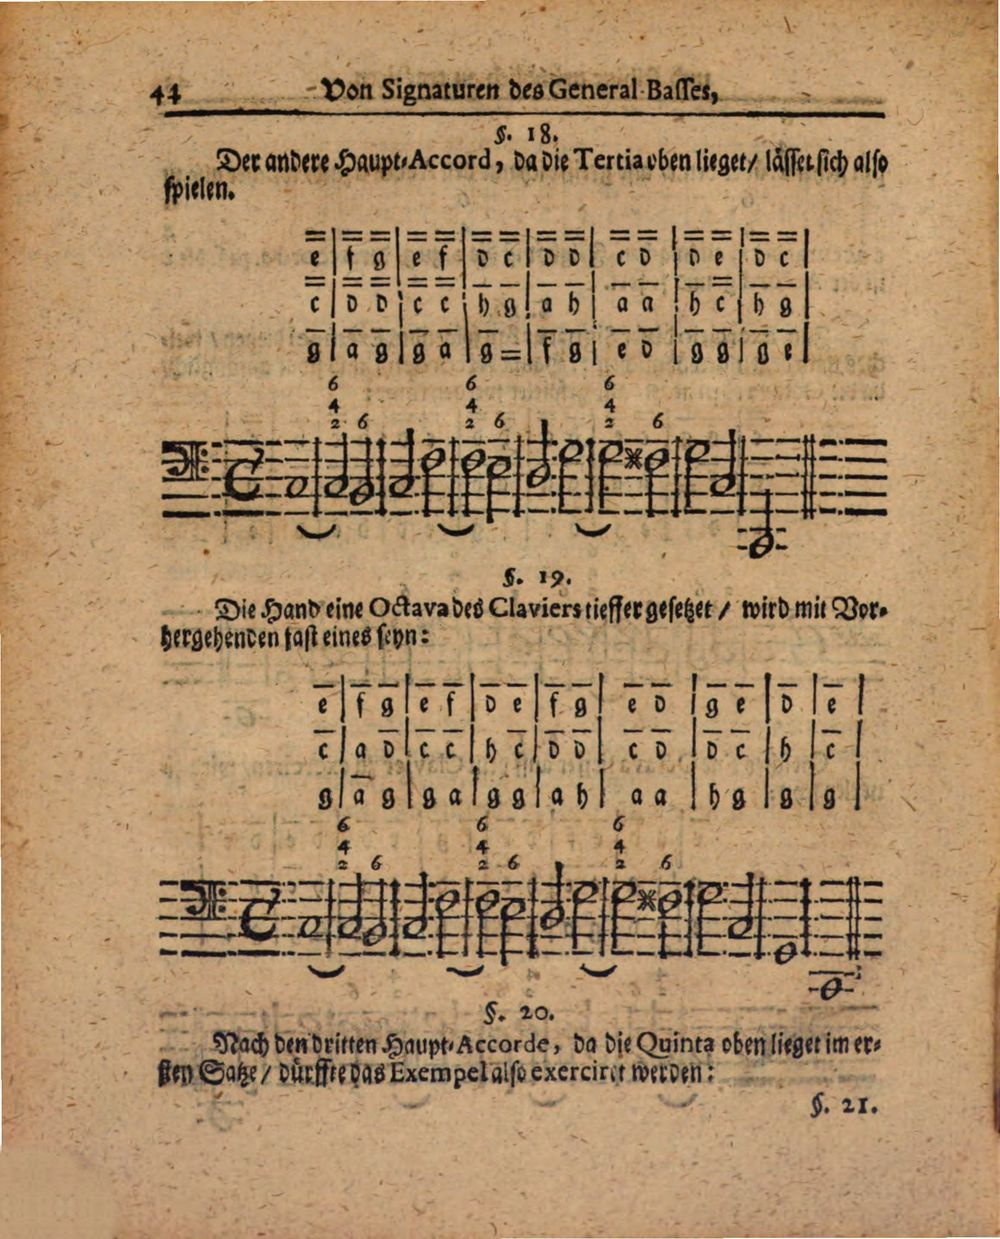 44 Von Signaturen des General-Basses,
§. 18.
Der andere Haupt-Accord, da die Tertia oben lieget/ lässet sich also
spielen.
e | f g | e f | d c | d d | c d | d e | d c |
c | d d | c c | h g | a h | a a | h c | h g |
g | a g | g a | g = | f g | e d | g g | g e |
6 6 6
4 4 4
2 6 2 6 2 6
§. 19.
Die Hand eine Octava des Claviers tieffer gesetzet / wird mit Vor-
hergehenden fast eines seyn:
e | f g | e f | d e | f g | e d | g e | d | e |
c | a d | c c | h c | d d | c d | d c | h | c |
g | a g | g a | g g | a h | a a | h g | g | g |
6 6 6
4 4 4
2 6 2 6 2 6
§. 20.
Nach den dritten Haupt-Accorde, da die Quinta oben lieget im er-
sten Satze / dürffte das Exempel also exerciret werden:
§. 21.